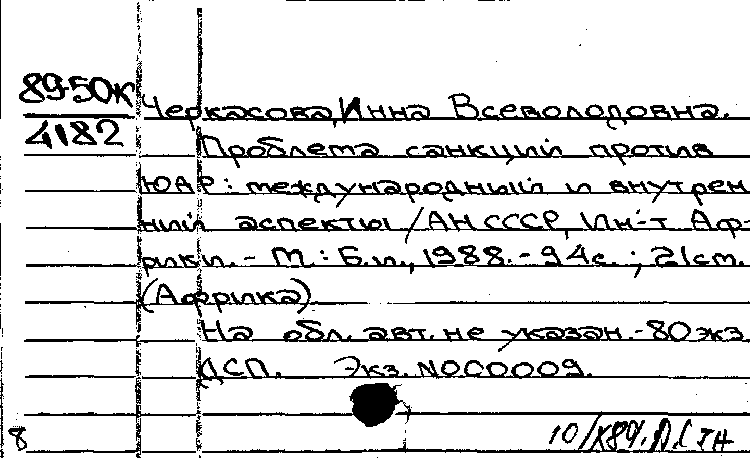 89-50К
4182
Черкасова, Инна Всеволодовна.
Проблема санкций против
ЮАР: международный и внутрен
ний аспекты / АН СССР, Ин-т Аф-
рики. - М.: Б.и., 1988. - 94с.; 21см.
(Африка)
На обл. авт. не указан. - 80 экз.
ДСП. Экз. N000009.
8